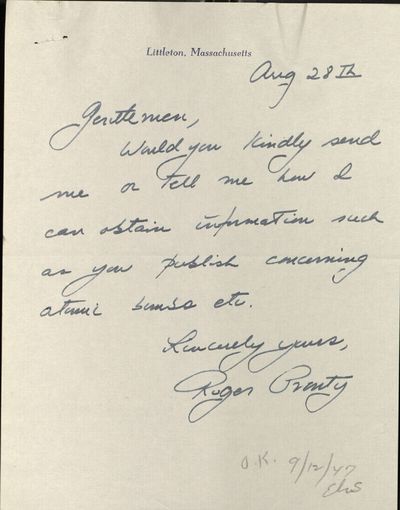 Littleton, Massachusetts
Aug 28th
Gentlemen,
Would you kindly send
me or tell me how I
can obtain information such
as you publish concerning
atomic bombs etc.
Sincerely yours,
Roger Prouty
O.K. 9/12/47